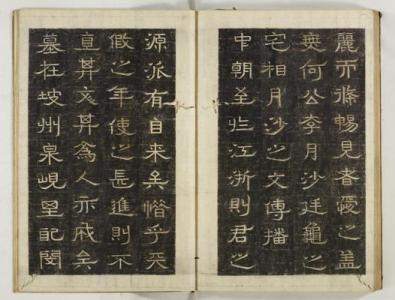 麗而條暢見者之盖
無何公李月沙廷龜之
宅相月沙之文傳播
中朝至于江浙則君之
源派有自来矣惜乎天
假之年使之長進則不
直其文其為人亦成矣
墓在坡州泉峴里配閔